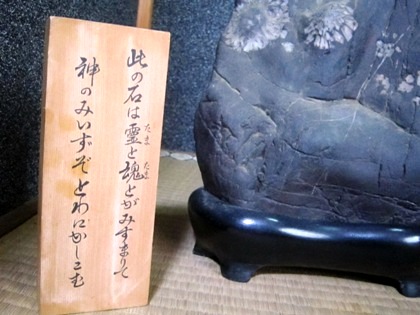 此の石は霊と魂とがみすまりて
たま
たま
神のみいずぞとわにかしこむ